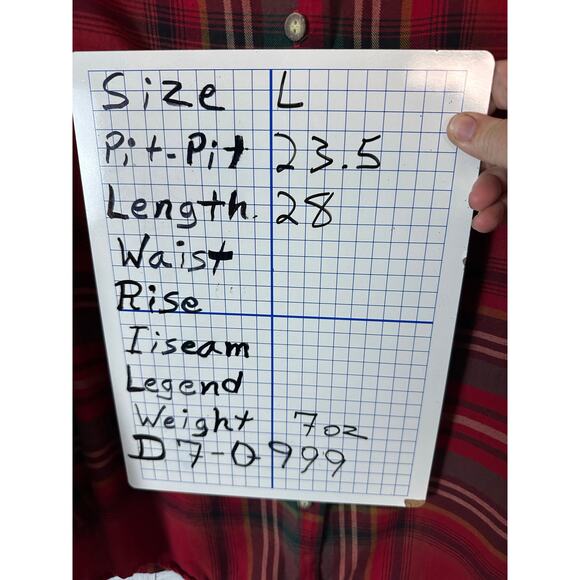 Size L
Pit-Pit 23.5
Length. 28
Waist
Rise
Iiseam
Legend
Weight 7oz
D7-0999